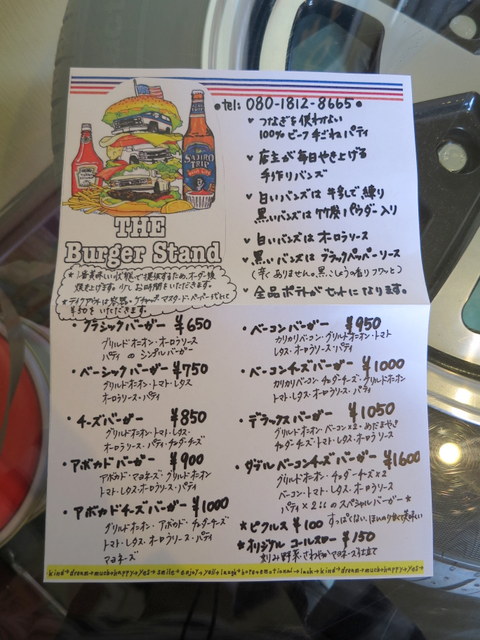 tel: 080-1812-8665
つなぎを使わない
100%ビーフ手ごねパティ
店主が毎日やき上げる
手作りバンズ
白いバンズは牛乳で練り
黒いバンズは竹炭パウダー入り
白いバンズはオーロラソース
黒いバンズはブラックペッパーソース
(辛くありません。黒こしょうの香りフワッと)
全品ポテトがセットになります。
THE
Burger Stand
焼き上げます。少しお時間をいただきます。
¥50をいただきます。
・クラシックバーガー ¥650
グリルドオニオン・オーロラソース
パティ のシングルバーガー
・ベーシックバーガー ¥750
グリルドオニオン・トマト・レタス
オーロラソース・パティ
・チーズバーガー ¥850
グリルドオニオン・トマト・レタス・
オーロラソース・パティ・チェダーチーズ
・アボカドバーガー ¥900
アボカド・マヨネーズ・グリルドオニオン
トマト・レタス・オーロラソース・
パティ
・アボカドチーズバーガー ¥1000
グリルドオニオン・アボカド・チェダーチーズ
トマト・レタス・オーロラソース・パティ
マヨネーズ
・ベーコンバーガー ¥950
カリカリベーコン・グリルドオニオン・トマト
レタス・オーロラソース・パティ
・ベーコンチーズバーガー ¥1000
カリカリベーコン・チェダーチーズ・グリルドオニオン
トマト・レタス・オーロラソース・パティ
・デラックスバーガー ¥1050
グリルドオニオン・ベーコン×2・めだまやき
チェダーチーズ・トマト・レタス・オーロラソース
・ダブルベーコンチーズバーガー ¥1600
グリルドオニオン・チェダーチーズ×2
ベーコン・トマト・レタス・オーロラソース
パティ×2 のスペシャルバーガー★
★ピクルス ¥100
★オリジナルコールスロー ¥150